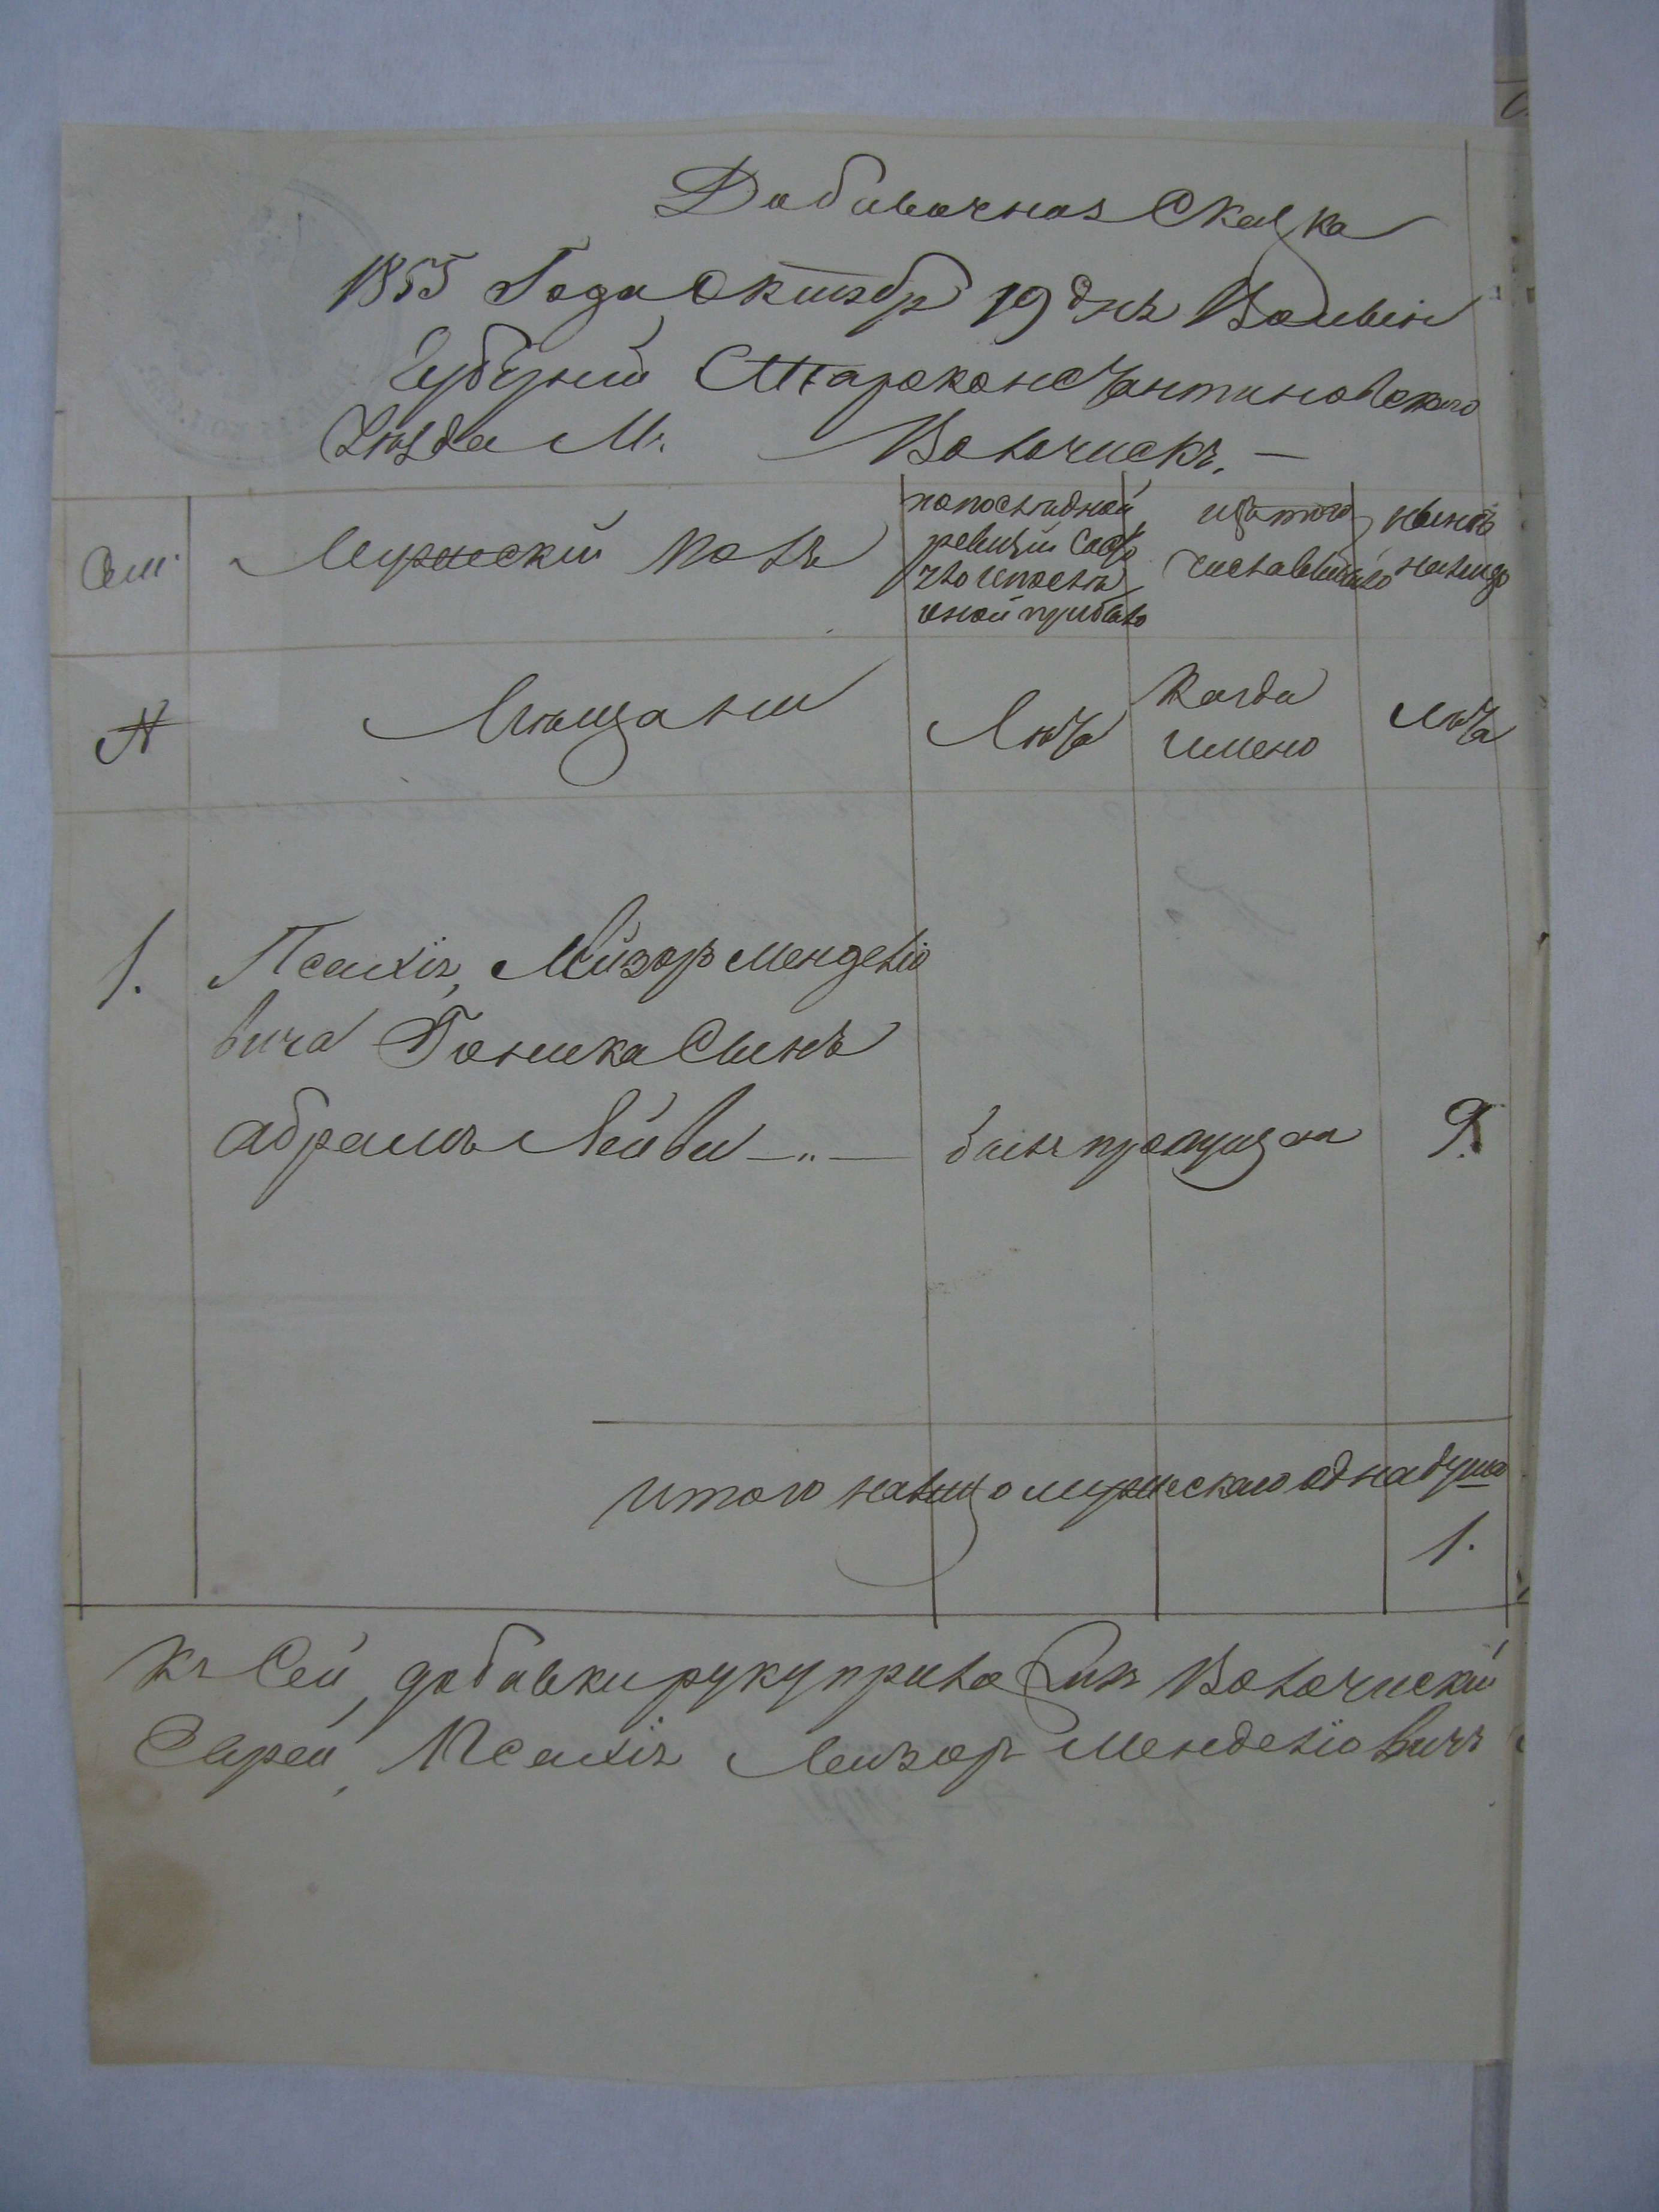 Добавочная Сказка
1855 Года Октябр 19 днъ Волын
Губернии Староконстантиновского
Уезда М. Волочискъ. —
Сем. Мужеский полъ
по последной
ревизии состо
яло и после
оной прибыло
из того
числа выбыло
ныне
налицо
№ Мещани Лета Когда
имено лета
1. Псахiя, Лейзор Менделiо
вича Гоника Сынъ
абрамъ Лейви —〃— былъ пропущен 9.
итого налицо мужескаго одна душа
1.
Къ Сей, добавки руку прило Волочиский
Еврей, Псахiя Лейзор Менделiовичъ